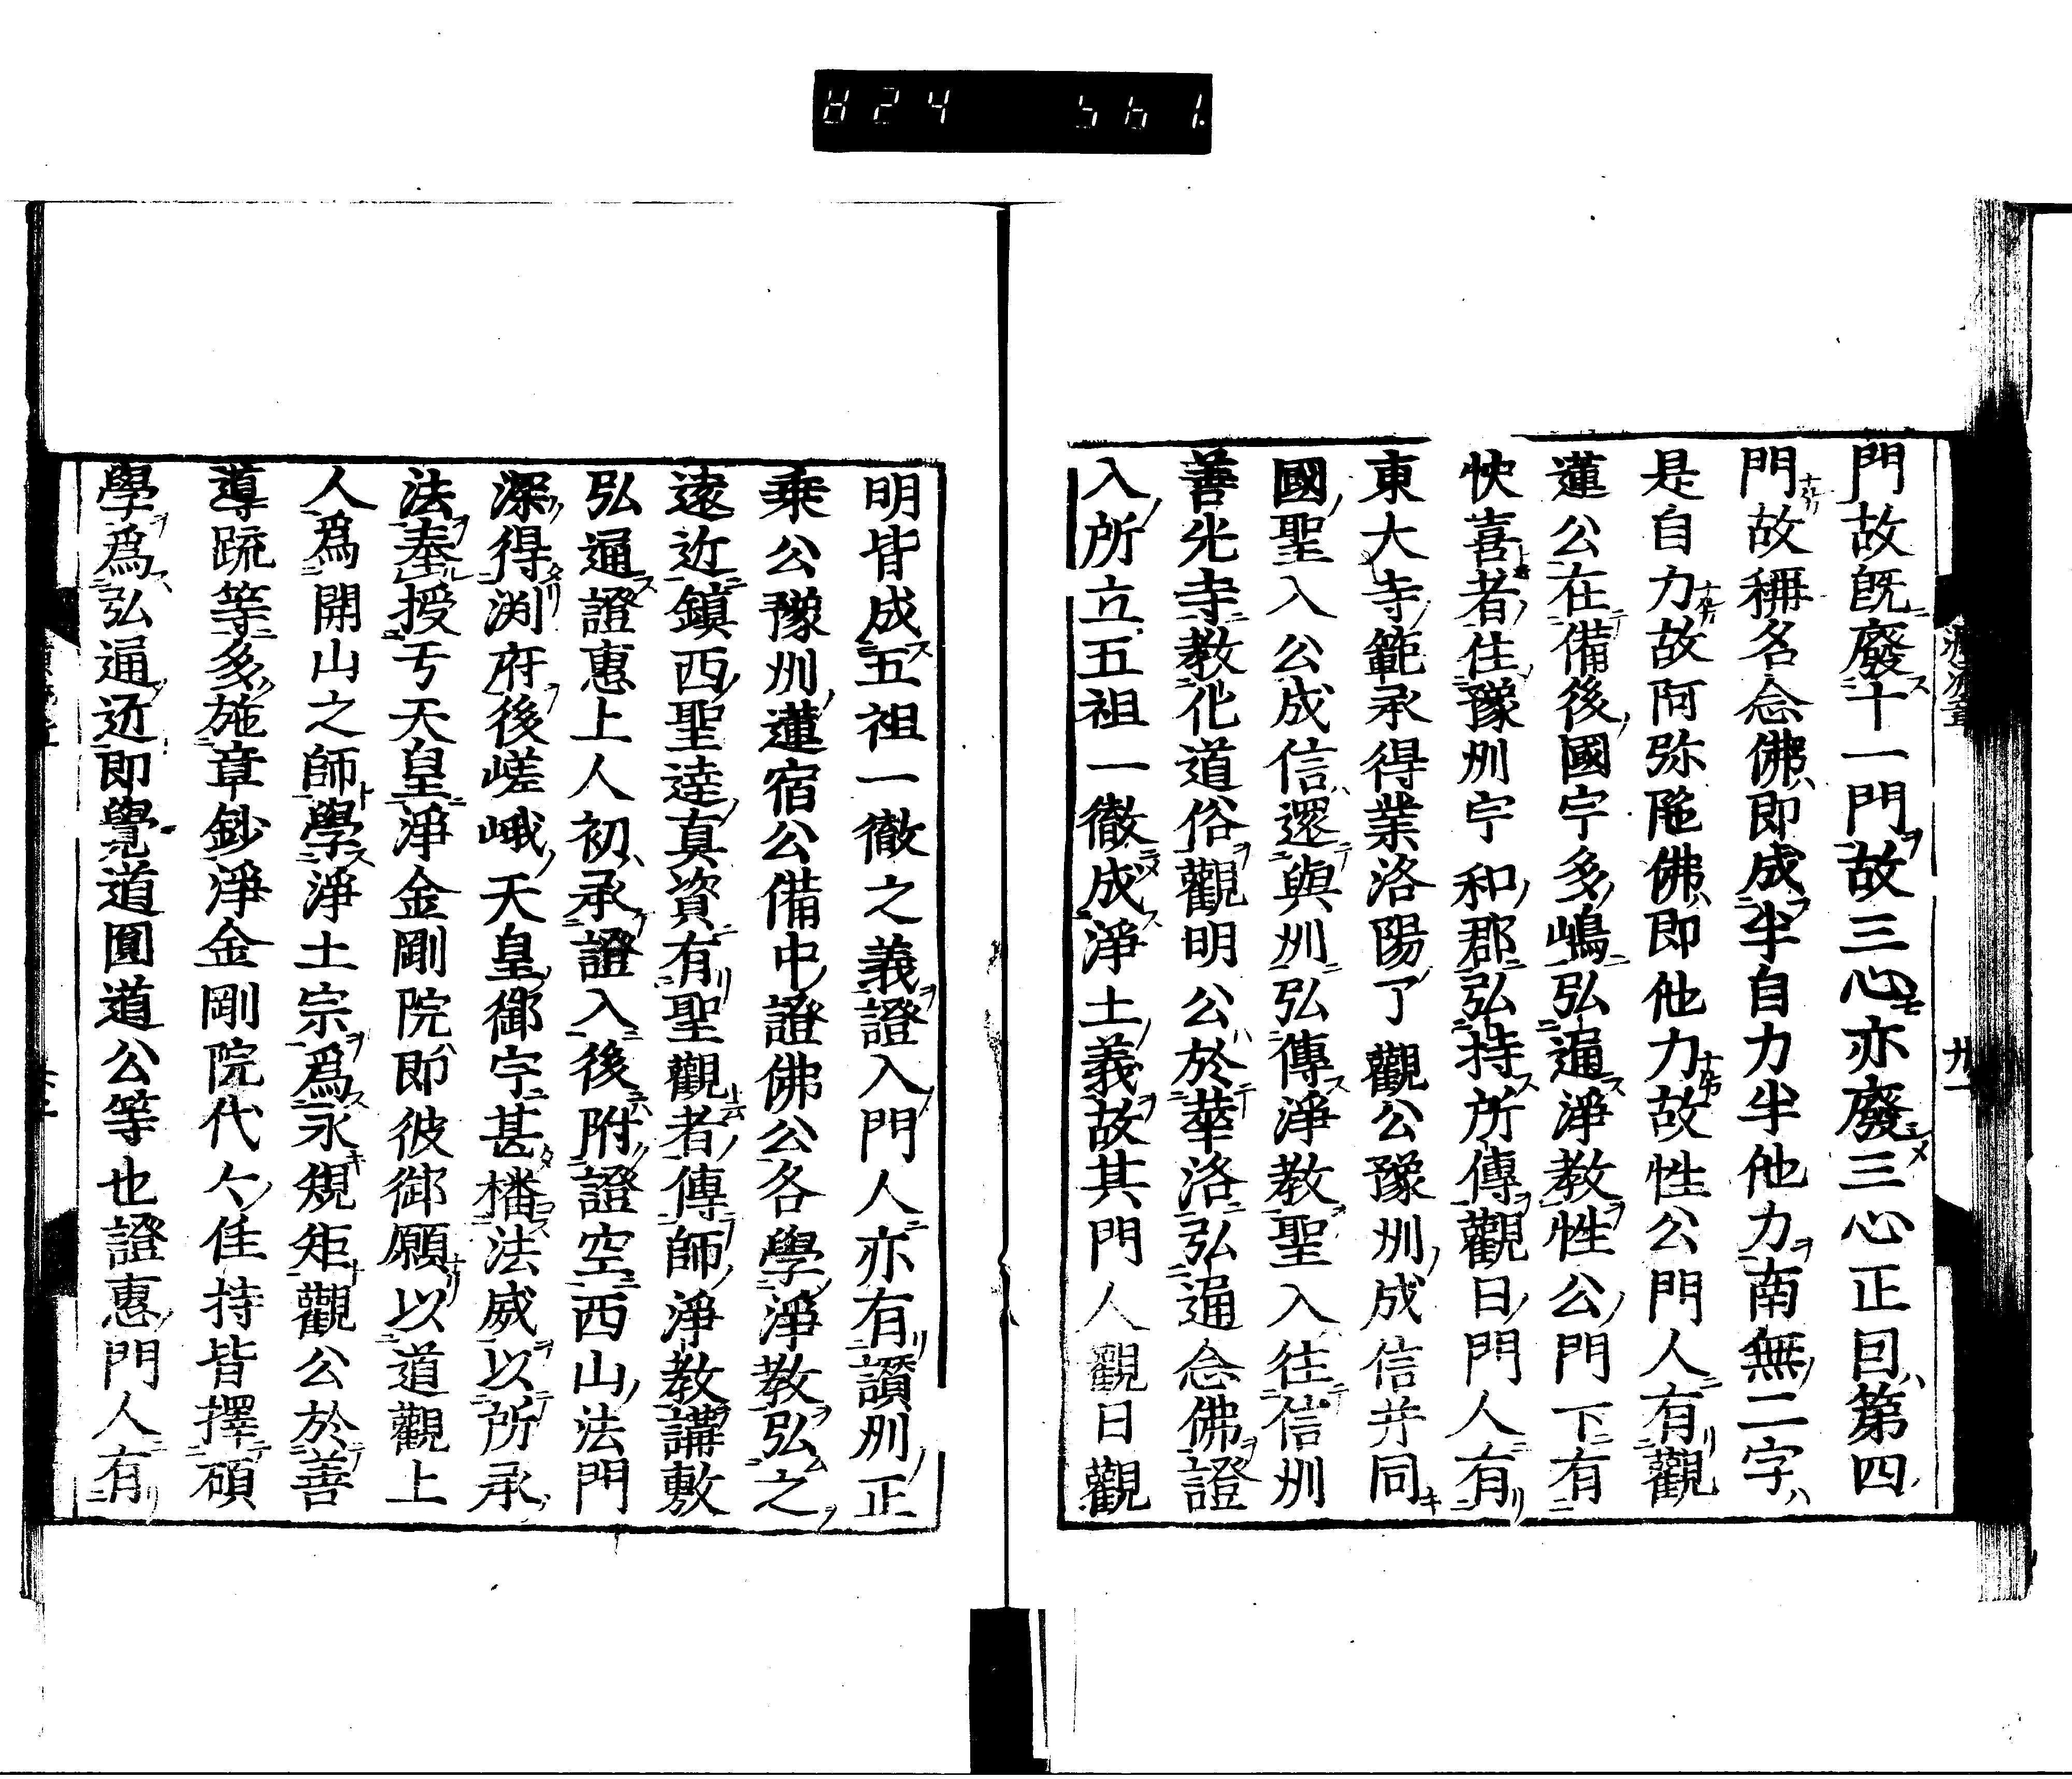 824 561.
門故既廢十一門故三心亦廢三心正因第四
門故稱名念佛即成半自力半他力南無二字
是自力故阿弥陁佛即他力故性公門人有觀
蓮公在備後國宇多嶋弘通淨教性公門下有
快喜者住豫州宇和郡弘持所傳觀日門人有
東大寺範承得業洛陽了觀公豫州成信并同
國聖入公成信還與州弘傳淨教聖入往信州
善光寺教化道俗觀明公於華洛弘通念佛證
入所立五祖一徹成淨土義故其門人觀日觀
明皆成五祖一徹之義證入門人亦有讚州正
乘公豫州蓮宿公備中證佛公各學淨教弘之
遠近鎮西聖達真資有聖觀者傳師淨教講敷
弘通證惠上人初承證入後附證空西山法門
深得渕府後嵯峨天皇御宇甚播法威以所承
法奉授于天皇淨金剛院即彼御願以道觀上
人為開山之師學淨土宗為永規矩觀公於善
導疏等多施章鈔淨金剛院代々住持皆擇碩
學為弘通近即覺道圓道公等也證惠門人有